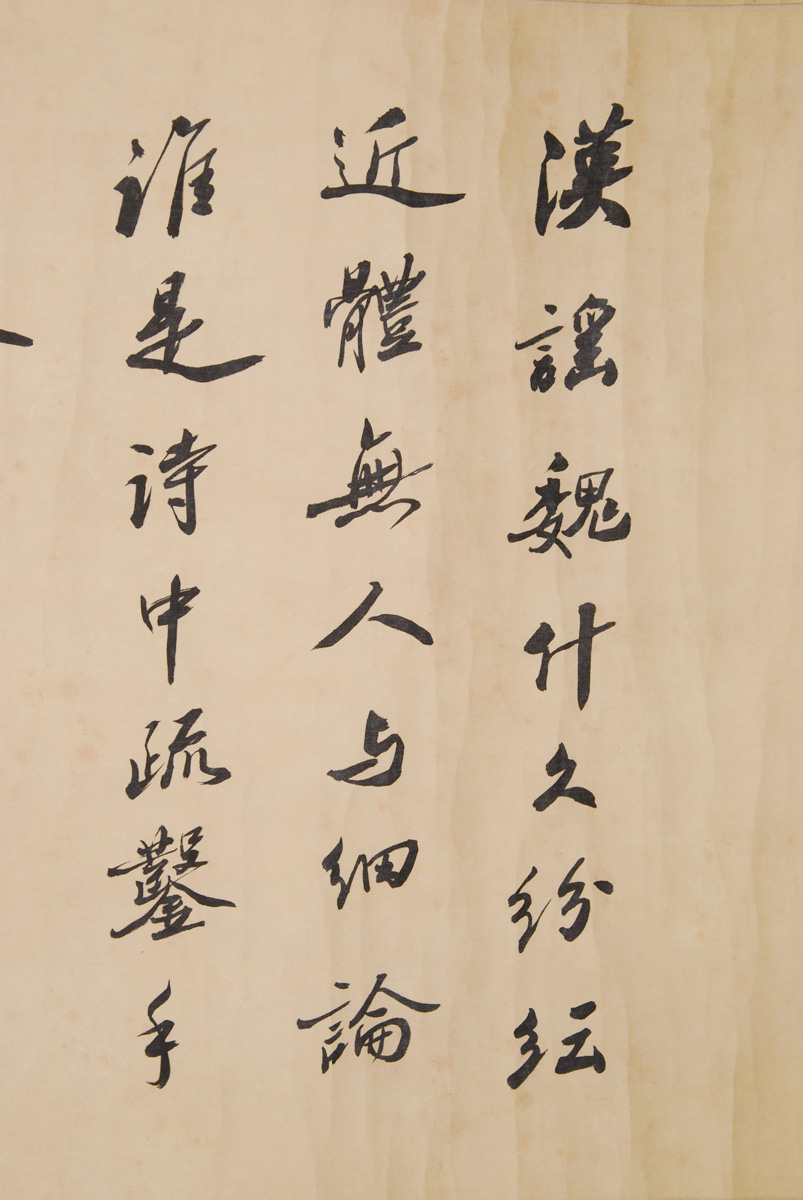 漢謡魏什久紛紜
近體無人与細論
誰是诗中疏鑿手